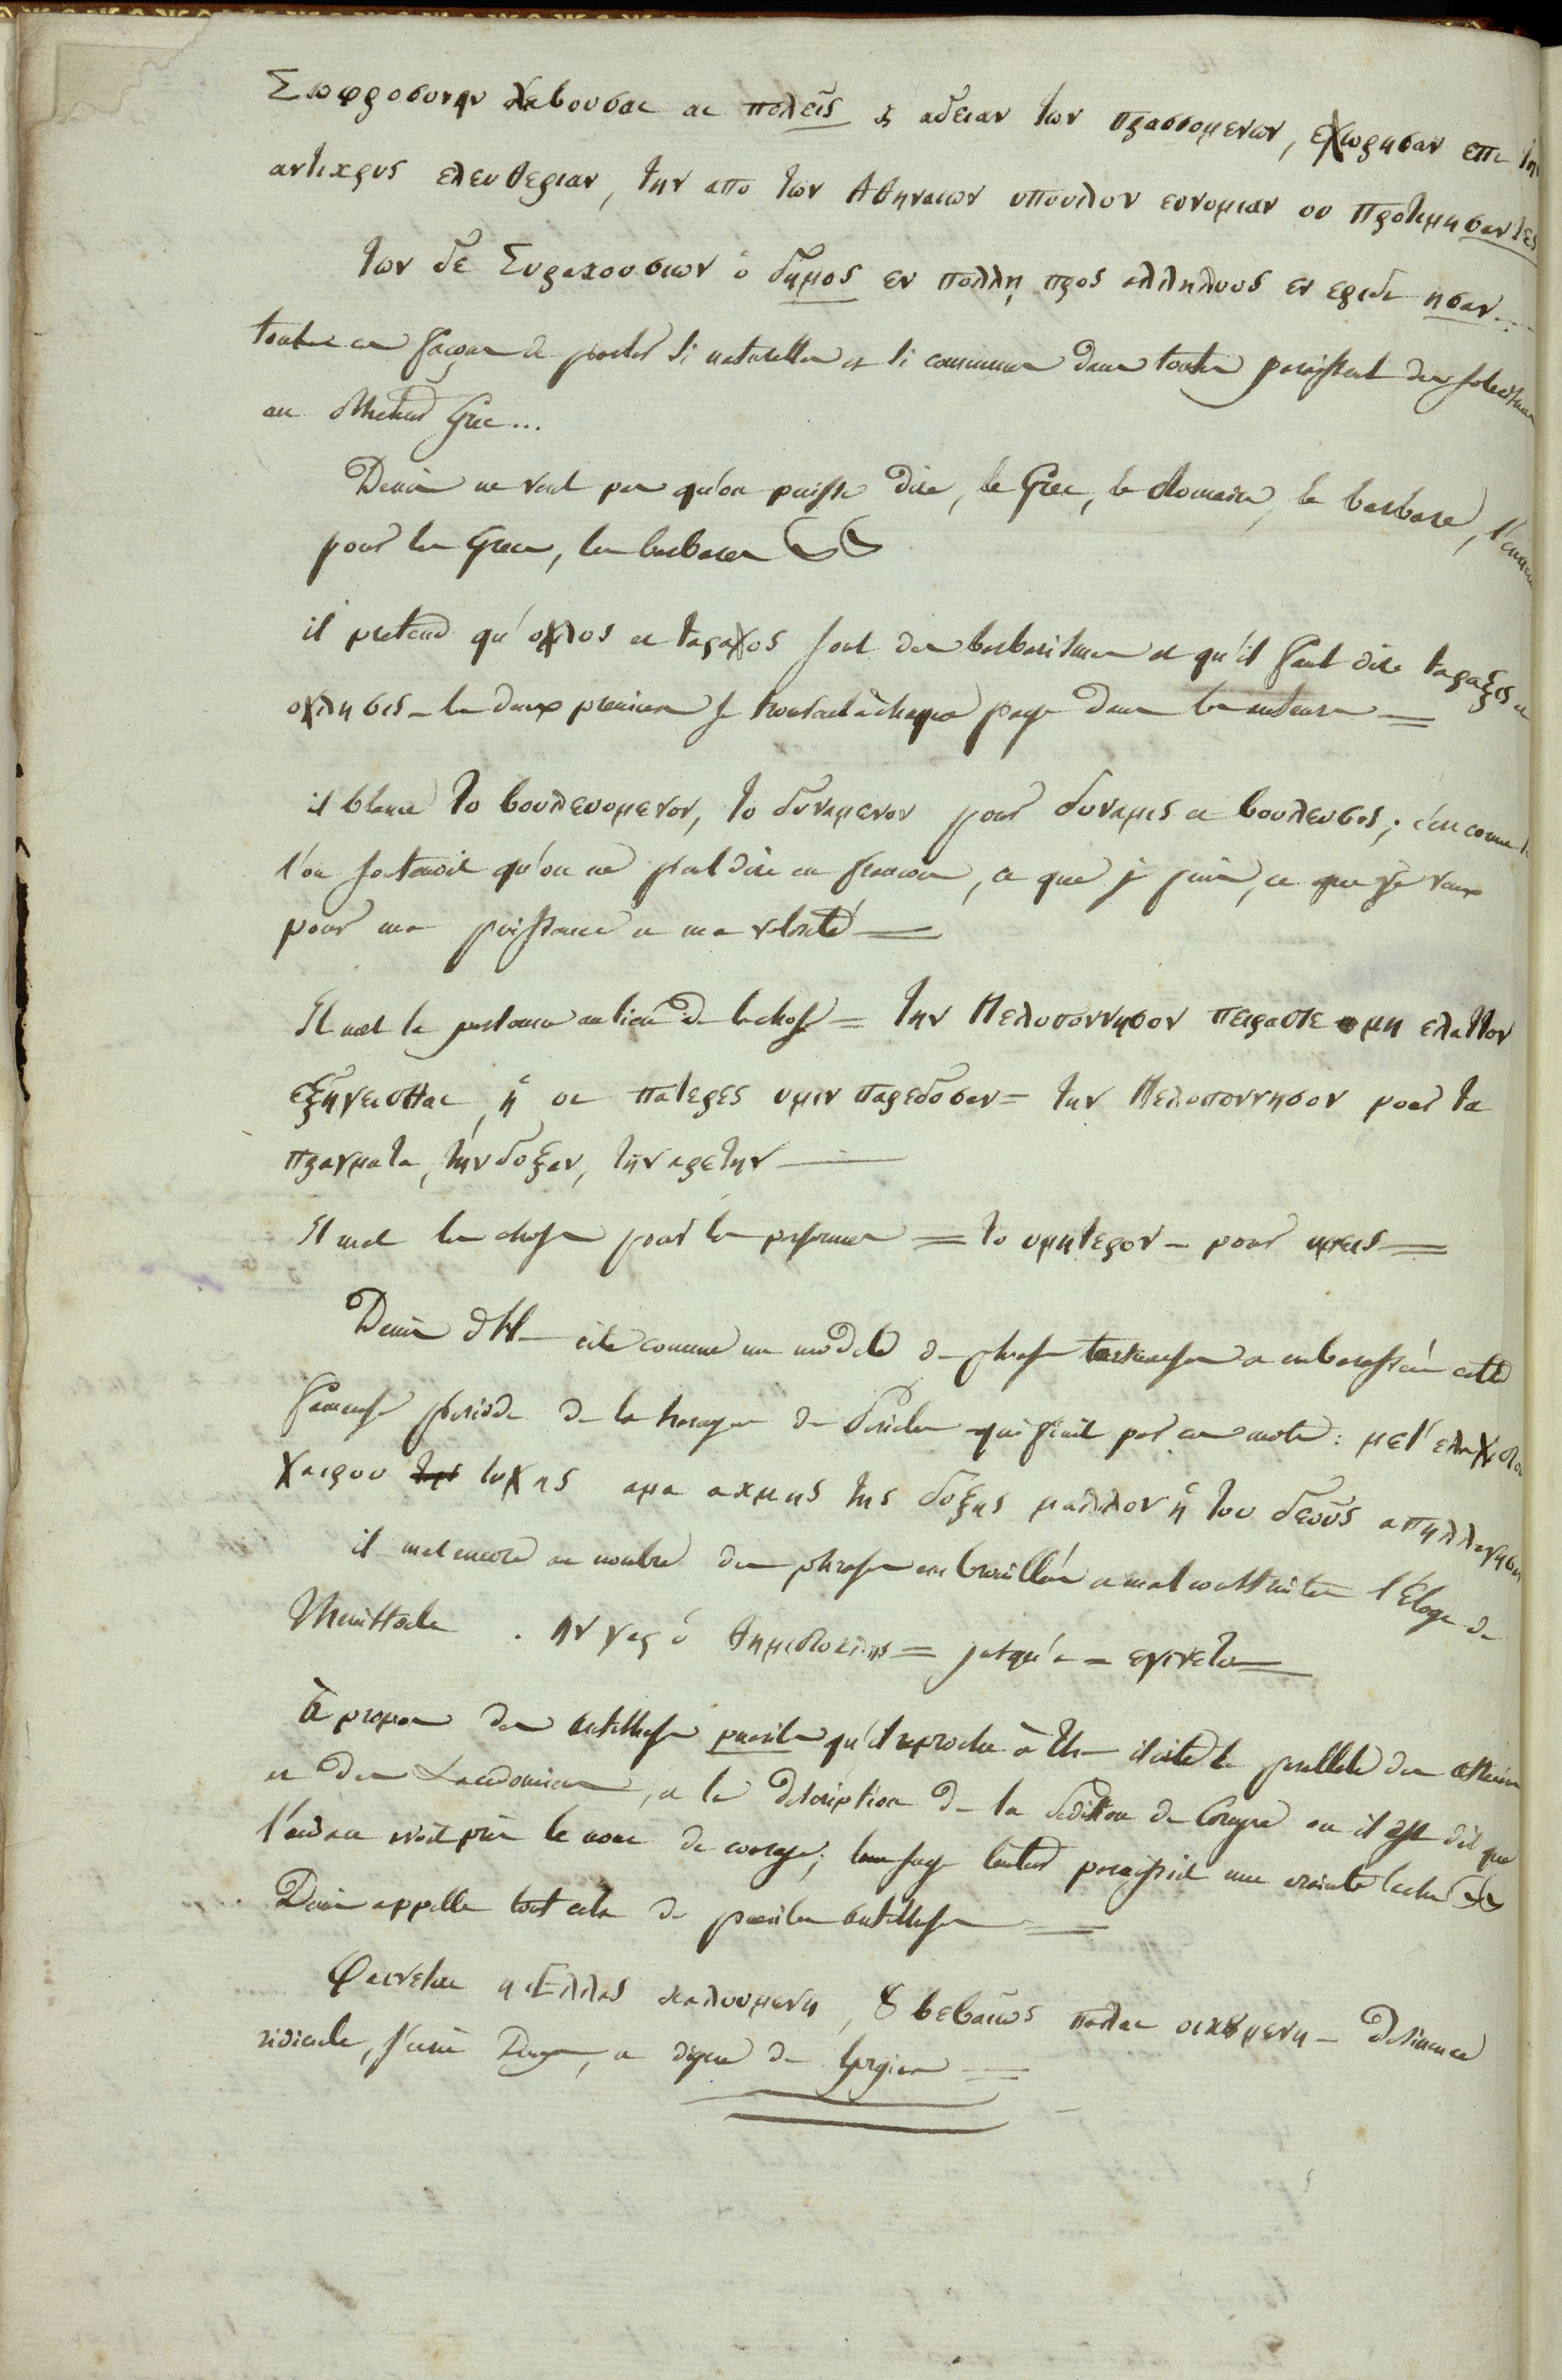 Σωφροσυνην λαβουσαι αι πολεις ϗ αδειαν των πρασσομενων, εχωρησαν επι την
αντικρυς ελευθεριαν, την απο των Αθηναιων υπουλον ευνομιαν ου προτιμησαντες
των δε Συρακουσιων ὁ δημος εν πολλη προς αλληλους εν εριδι ησαν...
toutes ces façons de parler si naturelles et si communes dans toutes paroissent des solecismes
au Rheteur Grec...
Denis ne veut pas qu'on puisse dire, le Grec, le Romain, le barbare, l'ennemi
pour les Grecs, les barbares
il pretend qu'οχλος et ταραχος sont des barbarismes et qu'il faut dire ταραξις et
οχλησις - les deux premiers se trouvent à chaque page dans les auteurs =
il blame το βουλευομενον, το δυναμενον pour δυναμις et βουλευσις; c'est comme si
l'on soutenoit qu'on ne peut dire en francois, ce que je puis, ce que je veux
pour ma puissance et ma volonté =
Il met la personne au lieu de la chose = την Πελοποννησον πειρασθε μη ελαττον
εξηγεισθαι, ἡ οι πατερες υμιν παρεδοσαν = την Πελοποννησον pour τα
πραγματα, την δοξαν, την αρετην
Il met les choses pour les personnes = το υμητερον - pour υμεις =
Denis d'H - cite comme un modele de phrase tortueuse et embarassée cette
fameuse periode de la harangue de Pericles qui finit par ces mots: μετ' ελαχιστου
χαιρου της τυχης αμα ακμης της δοξης μαλλον ἡ του δεους απηλλαγησαν
il met encore au nombre des phrases embrouillées et mal construites l'Éloge de
Themistocle . ην γαρ ὁ θημιστοκλης = jusqu'a = εγινετο =
à propos des antitheses pueriles qu'il reproche à Th- il cite le parallele des Atheniens
et des Lacedemoniens, et la description de la sedition de Corcyre ou il est dit que
l'audace avoit pris le nom de courage; la sage lenteur paroissoit une crainte lache
Denis appelle tout cela de pueriles antitheses =
Φαινεται η Ελλας καλουμενη, ȣ βεβαιως παλαι οικȣμενη - desinence
ridicule, s'ecrie Denys, et digne de Gorgias =